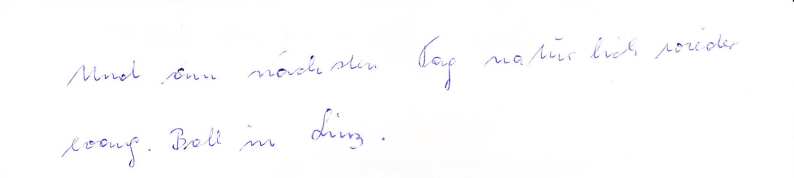 Und am nächsten Tag natürlich wieder
evang. Ball in Linz.